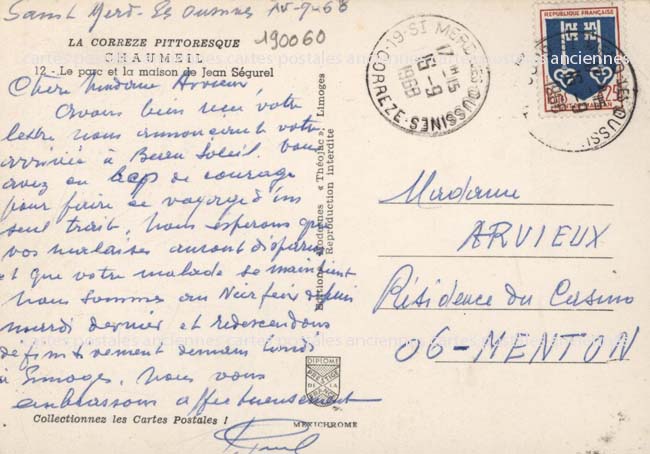 Saint Merd-Es Oussines 15-9-68
190060
LA CORREZE PITTORESQUE
CHAUMEIL
12 - Le parc et la maison de Jean Ségurel
Chère Madame Arvieux
Avons bien reçu votre
lettre nous annonçant votre
arrivée à Beau Soleil. Vous
avez eu bcp de courage
pour faire ce voyage d'un
seul trait. Nous espérons que
vos malaises auront disparu
et que votre malade se maintient
Nous sommes au depuis
mardi dernier et redescendons
définitivement demain lundi
à Limoges. Nous vous
embrassons affectueusement
Collectionnez les Cartes Postales !
Editions Modernes « Théojac », Limoges
Reproduction interdite
DIPLOME
PRESTIGE
DE LA
FRANCE
MEXICHROME
19-ST MERD-LES-OUSSINES
CORREZE
17 H 15
15-9
1968
REPUBLIQUE FRANÇAISE
0,25
Madame
ARVIEUX
Résidence du Casino
06-MENTON
cartes postales anciennes